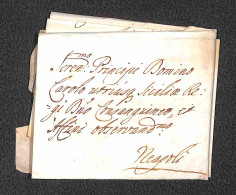 Seren.mo Principi Domino
Carolo utriusq Siciliæ Re-
gi Dño Consanguineo, et
Affini observandmo
Neapoli